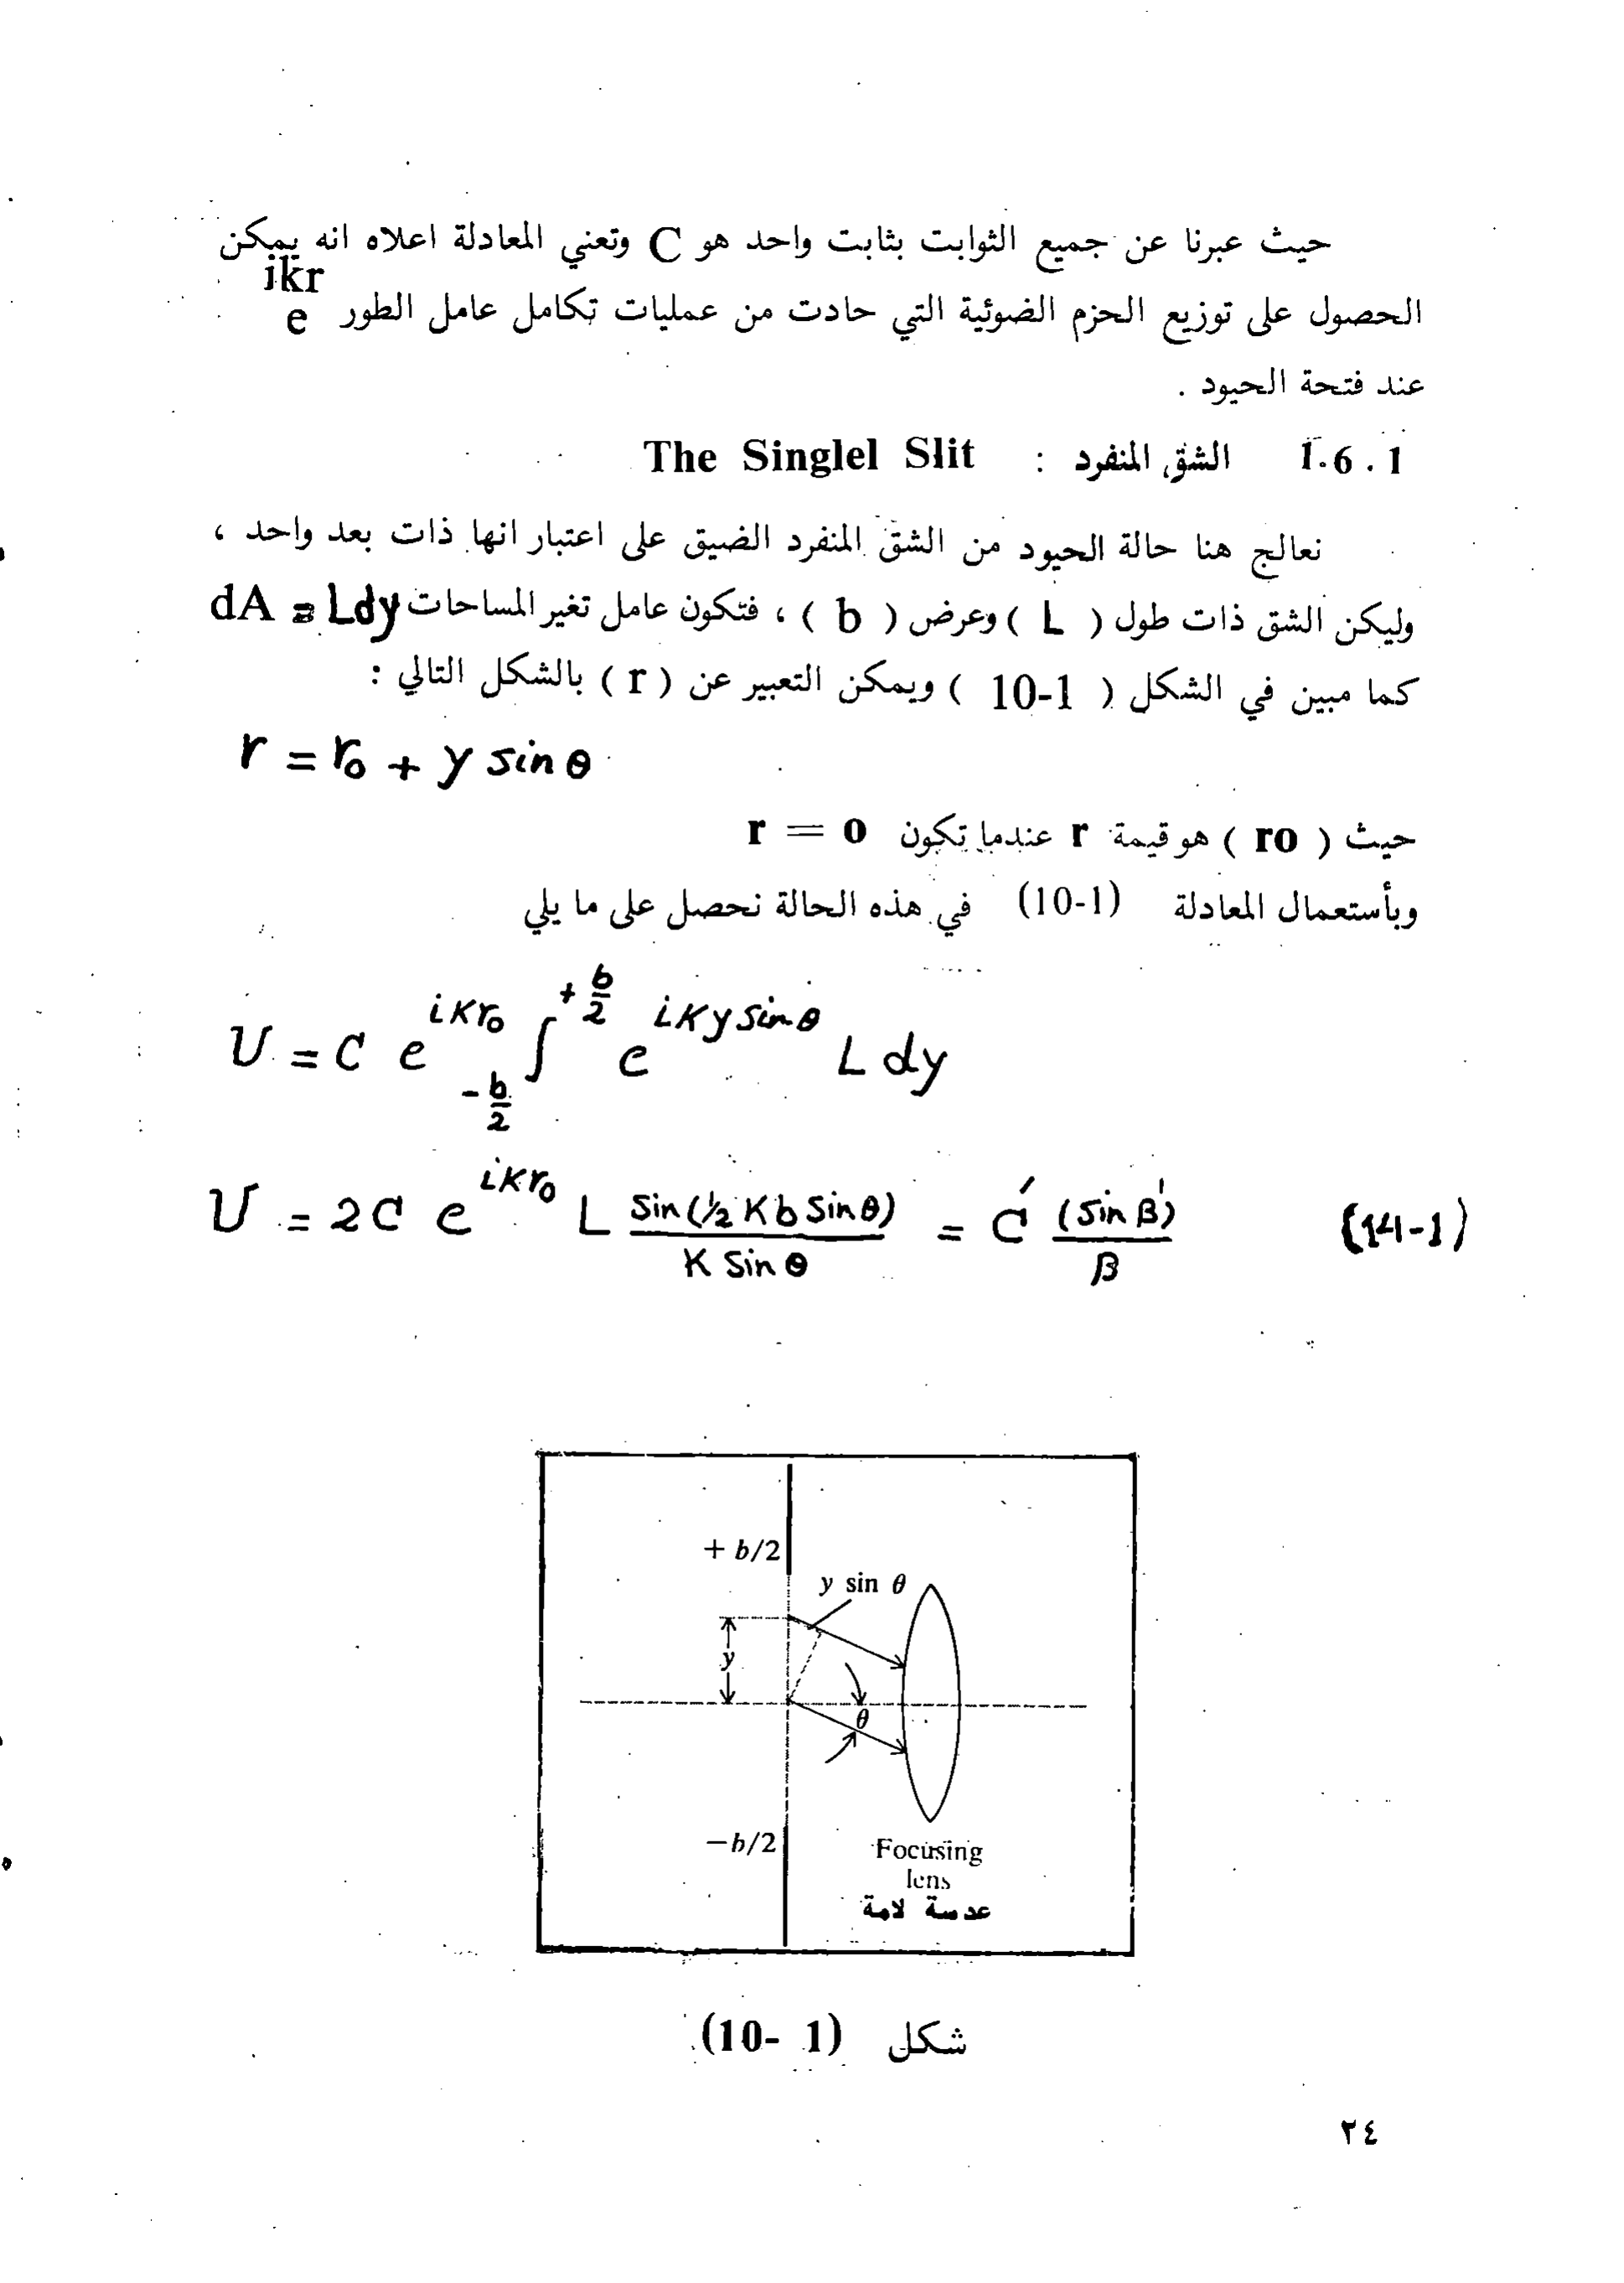 حيث عبرنا عن جميع الثوابت بثابت واحد هو C وتعني المعادلة اعلاه انه يمكن
الحصول على توزيع الحزم الضوئية التي حادت من عمليات تكامل عامل الطور e^ikr
عند فتحة الحيود .
1.6.1 الشق المنفرد : The Singlel Slit
نعالج هنا حالة الحيود من الشق المنفرد الضيق على اعتبار انها ذات بعد واحد ،
وليكن الشق ذات طول ( L ) وعرض ( b ) ، فتكون عامل تغير المساحات dA = Ldy
كما مبين في الشكل ( 10-1 ) ويمكن التعبير عن ( r ) بالشكل التالي :
r = r₀ + y sin θ
حيث ( ro ) هو قيمة r عندما تكون r = o
وبأستعمال المعادلة (10-1) في هذه الحالة نحصل على ما يلي
U = C e^{iKr₀} ∫_{-b/2}^{+b/2} e^{iKy sin θ} L dy
U = 2C e^{iKr₀} L Sin(½ K b Sin θ) / K Sin θ = C′ (Sin β′) / β (14-1)
+ b/2
y sin θ
y
θ
−b/2
Focusing
lens
عدسة لامة
شكل (10- 1)
٢٤